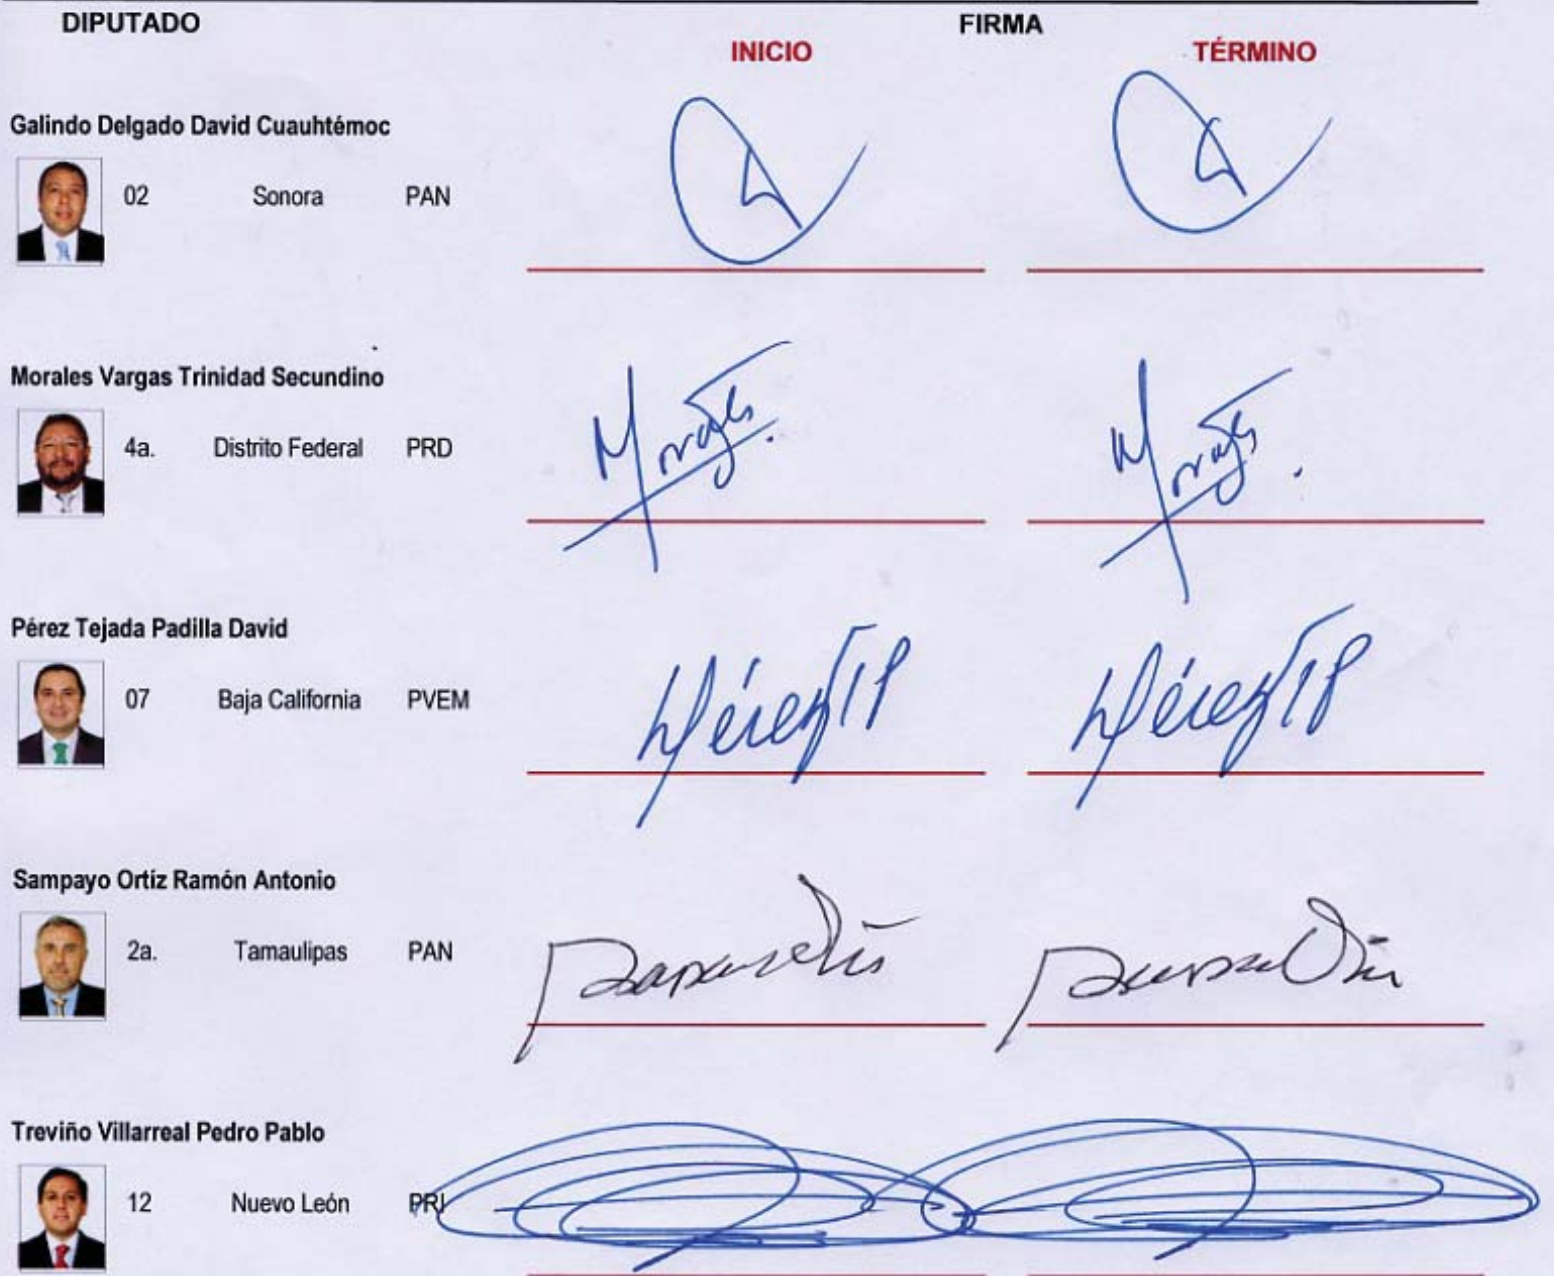 DIPUTADO FIRMA
INICIO TÉRMINO
Galindo Delgado David Cuauhtémoc
02 Sonora PAN
Morales Vargas Trinidad Secundino
4a. Distrito Federal PRD
Morales. Morales.
Pérez Tejada Padilla David
07 Baja California PVEM
PérezTP PérezTP
Sampayo Ortíz Ramón Antonio
2a. Tamaulipas PAN
Treviño Villarreal Pedro Pablo
12 Nuevo León PRI